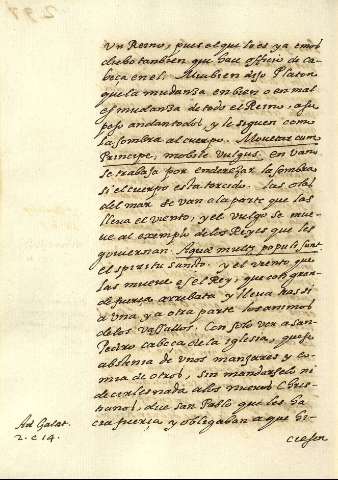 un Reino, pues el que lo es ya emos
dicho tambien que haze officio de ca-
beça en el. Mui bien dijo Platon
que la mudanza en bien o en mal
es mudanza de todo el Reino, a su
peso andan todos y le siguen como
la sombra al cuerpo. Movetur cum
Principe, mobile vulgus. en vano
se trabaja por enderezar la sombra
si el cuerpo esta torcido. Las olas
del mar se van a la parte que las
lleva el viento, y el vulgo se mue-
ve al exemplo de los Reyes que les
goviernan. Aquæ multæ populi sunt
el spiritu sancto. y el viento que
las mueve es el Rey, que con gran-
de fuerça arrebata y lleva hassi
a una y a otra parte los animos
de los vasallos. Con solo ver a san
Pedro cabeça de la iglesia, que se
abstenia de unos manjares y co-
mia de otros, sin mandarselo ni
decirles nada a los nuevos Chris-
tianos, dice san Pablo que les ha-
cia fuerça, y obligaban a que hi-
Ad Galat.
2. c 14.
ciesen